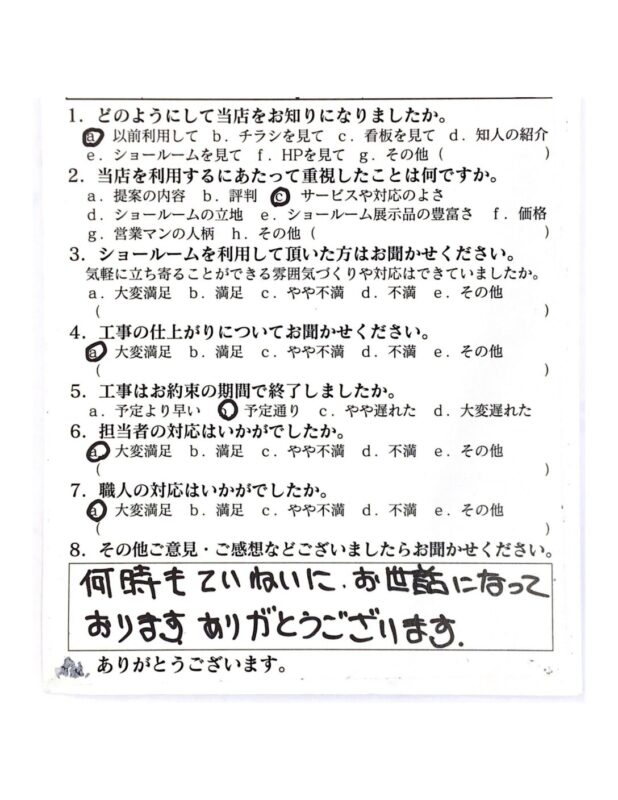 1．どのようにして当店をお知りになりましたか。
a 以前利用して b．チラシを見て c．看板を見て d．知人の紹介
e．ショールームを見て f．HPを見て g．その他（ ）
2．当店を利用するにあたって重視したことは何ですか。
a．提案の内容 b．評判 c サービスや対応のよさ
d．ショールームの立地 e．ショールーム展示品の豊富さ f．価格
g．営業マンの人柄 h．その他（ ）
3．ショールームを利用して頂いた方はお聞かせください。
気軽に立ち寄ることができる雰囲気づくりや対応はできていましたか。
a．大変満足 b．満足 c．やや不満 d．不満 e．その他
（ ）
4．工事の仕上がりについてお聞かせください。
a 大変満足 b．満足 c．やや不満 d．不満 e．その他
（ ）
5．工事はお約束の期間で終了しましたか。
a．予定より早い b 予定通り c．やや遅れた d．大変遅れた
6．担当者の対応はいかがでしたか。
a 大変満足 b．満足 c．やや不満 d．不満 e．その他
（ ）
7．職人の対応はいかがでしたか。
a 大変満足 b．満足 c．やや不満 d．不満 e．その他
（ ）
8．その他ご意見・ご感想などございましたらお聞かせください。
何時もていねいに、お世話になって
おります。ありがとうございます。
ありがとうございます。